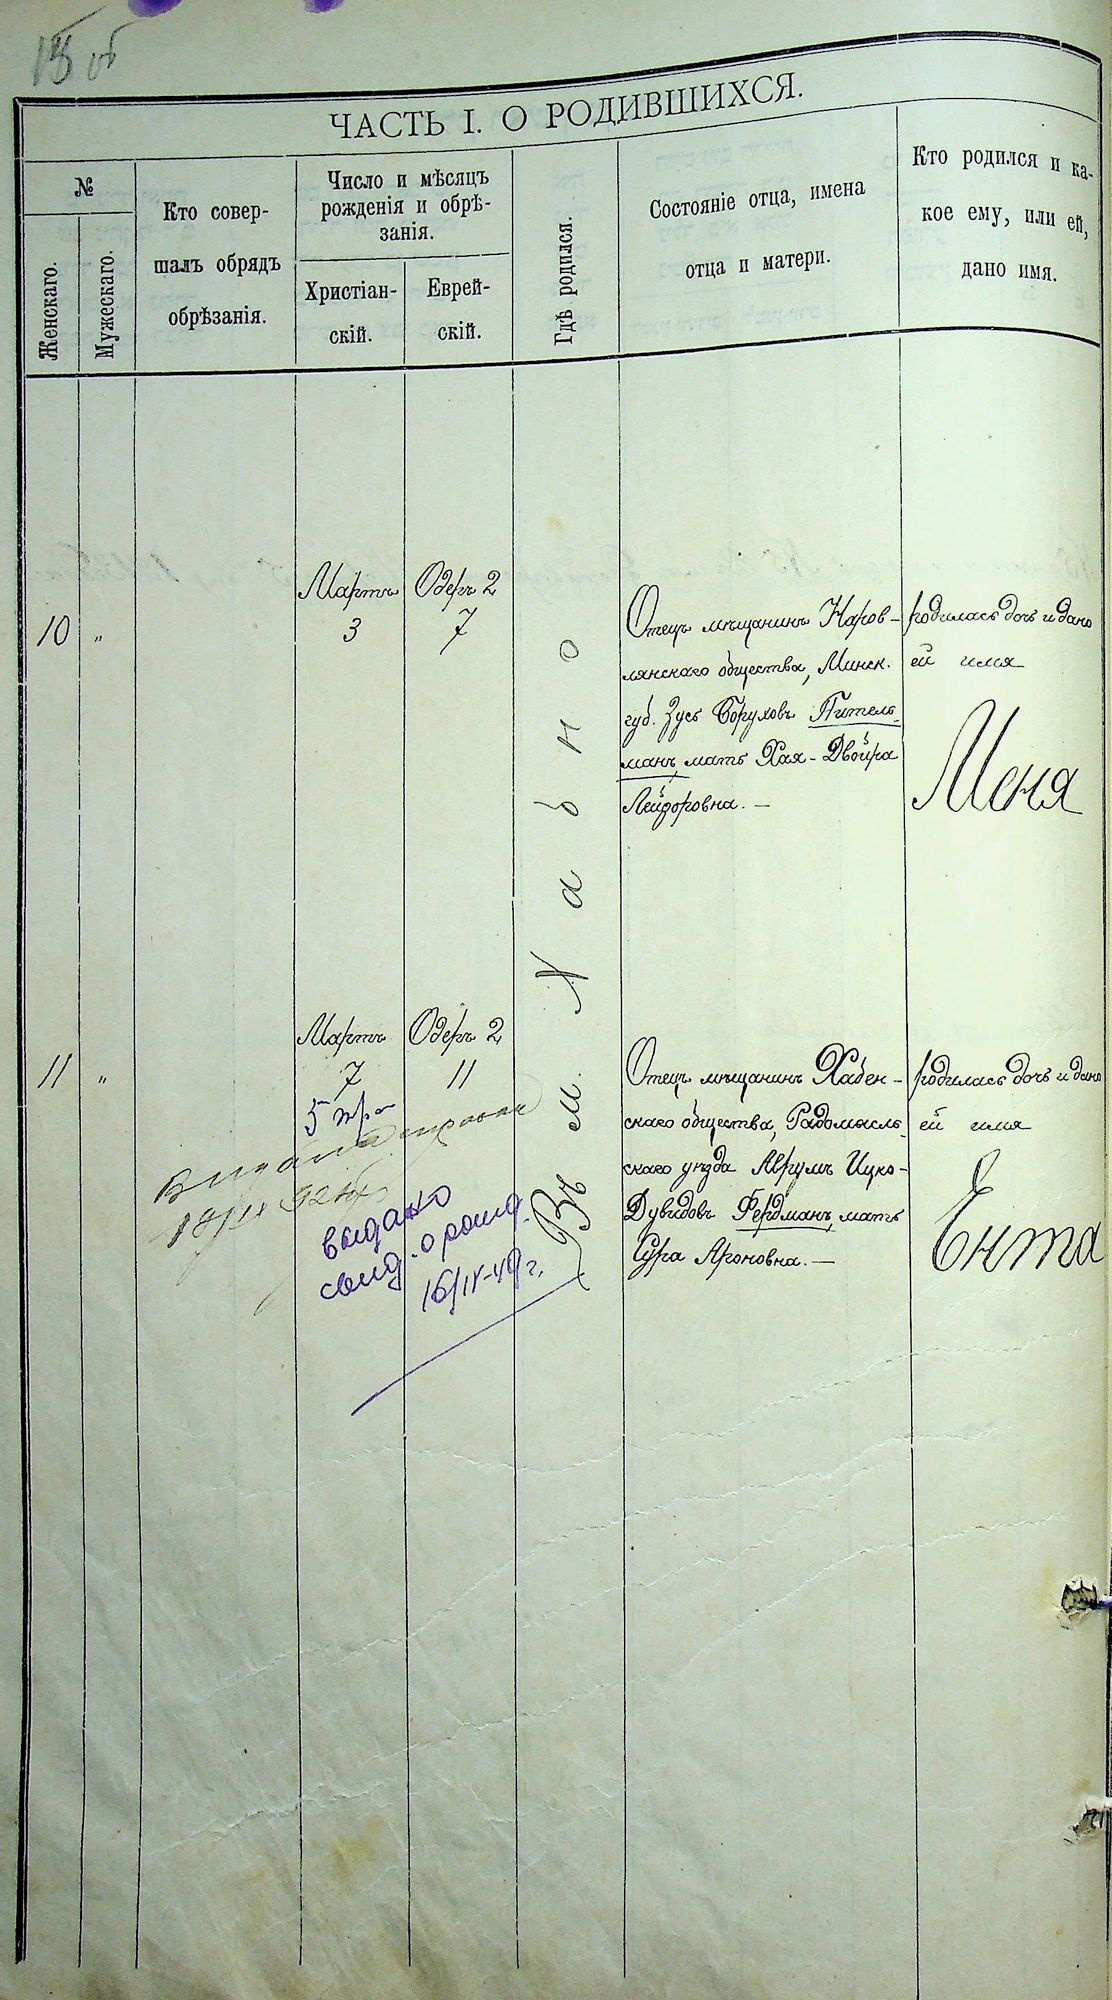 15 об
ЧАСТЬ I. О РОДИВШИХСЯ.
№
Женскаго.
Мужескаго.
Кто совер-
шалъ обрядъ
обрѣзанія.
Число и мѣсяцъ
рожденія и обрѣ-
занія.
Христіан-
скій.
Еврей-
скій.
Гдѣ родился.
Состояніе отца, имена
отца и матери.
Кто родился и ка-
кое ему, или ей,
дано имя.
Въ м. Хабно
10
"
Мартъ
3
Одеръ 2
7
Отецъ мѣщанинъ Наров-
лянскаго общества, Минск.
губ. Зусь Боруховъ Питель-
манъ, мать Хая-Двойра
Лейзоровна. —
родилась дочь и дано
ей имя
Меня
11
"
Мартъ
7
Одеръ 2
11
Отецъ мѣщанинъ Хабен-
скаго общества, Радомысль-
скаго уѣзда Аврумъ Ицко-
Дувидовъ Фердманъ, мать
Сура Ароновна. —
родилась дочь и дано
ей имя
Ента
5
выдано
свид. о рожд.
16/IV-49 г.